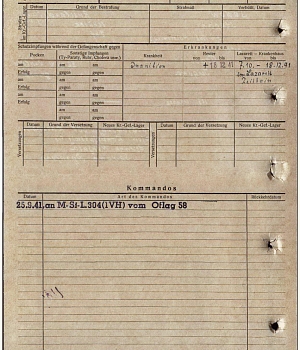 Datum
Grund der Bestrafung
Strafmaß
Verbüßt, Datum
Schutzimpfungen während der Gefangenschaft gegen
Erkrankungen
Pocken
Sonstige Impfungen
(Ty-Paraty, Ruhr, Cholera usw.)
Krankheit
Revier
von bis
Lazarett – Krankenhaus
von bis
am
am
am
7.10. – 18.12.41
Erfolg
gegen
gegen
am
am
am
Erfolg
gegen
gegen
am
am
am
Erfolg
gegen
gegen
Datum
Grund der Versetzung
Neues Kr.-Gef.-Lager
Datum
Grund der Versetzung
Neues Kr.-Gef.-Lager
Versetzungen
Kommandos
Datum
Art des Kommandos
Rückkehrdatum
25.9.41, an M-St-L.304(IVH) vom Oflag 58